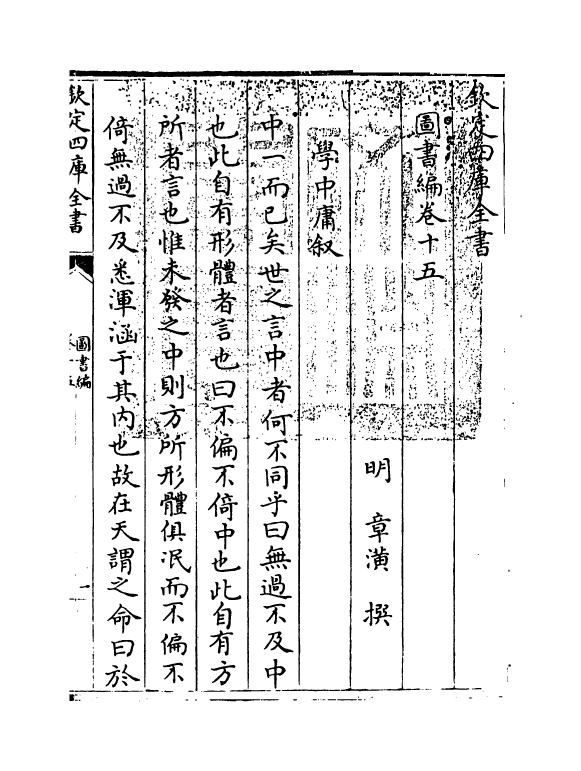 欽定四庫全書
圖書編卷十五
明 章潢 撰
學中庸叙
中一而已矣世之言中者何不同乎曰無過不及中
也此自有形體者言也曰不偏不倚中也此自有方
所者言也惟未發之中則方所形體俱泯而不偏不
倚無過不及悉渾涵于其内也故在天謂之命曰於
欽定四庫全書
圖書編
卷十五
一